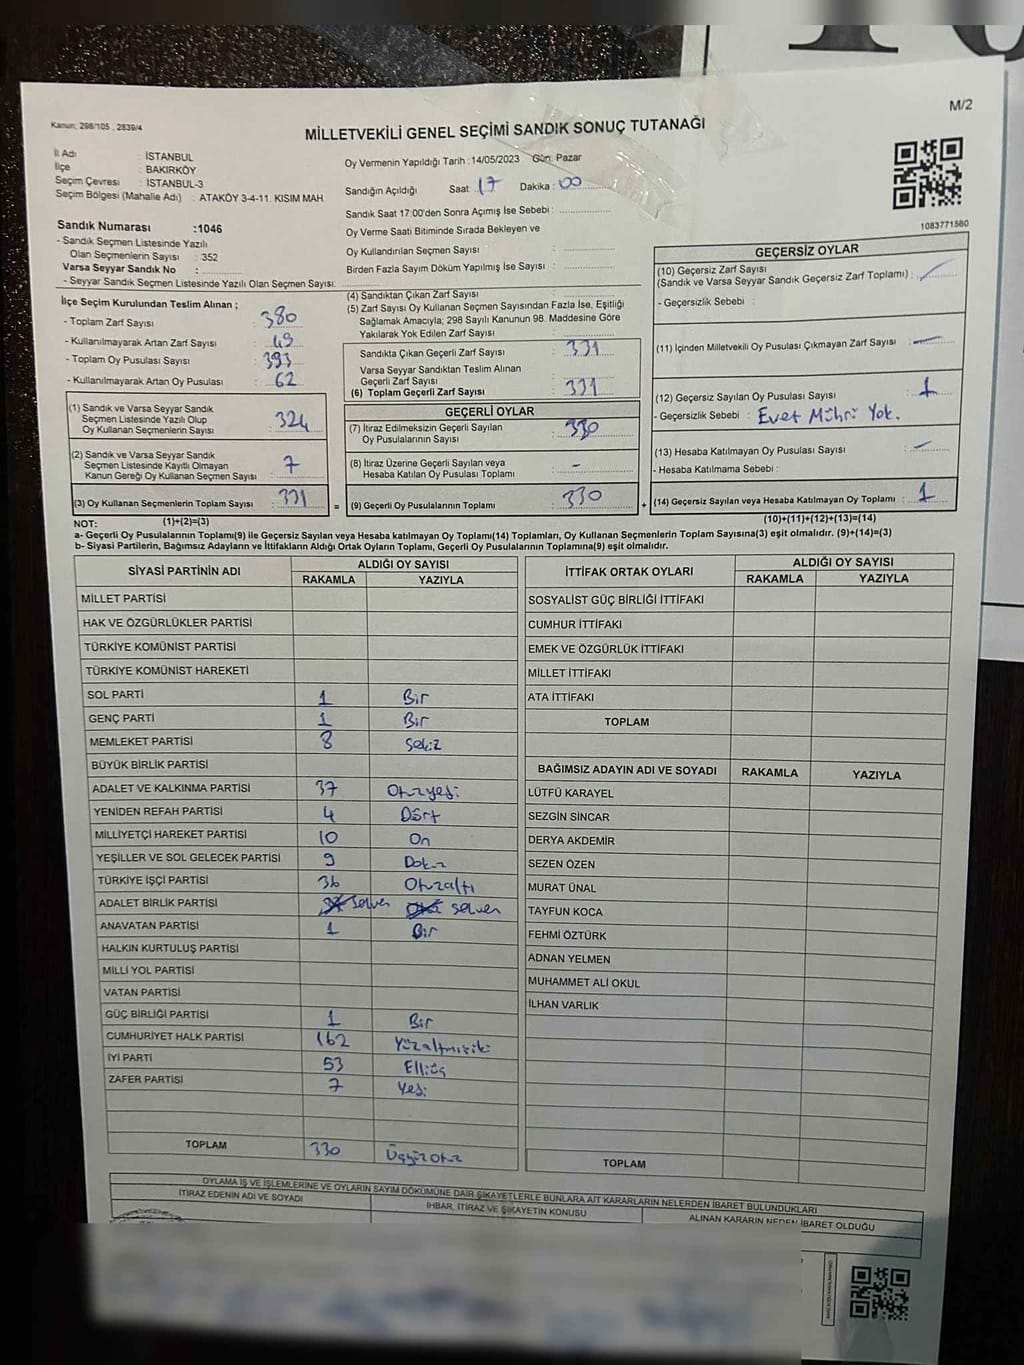 M/2
Kanun: 298/105 , 2839/4
MİLLETVEKİLİ GENEL SEÇİMİ SANDIK SONUÇ TUTANAĞI
İl Adı : İSTANBUL
İlçe : BAKIRKÖY
Seçim Çevresi : İSTANBUL-3
Seçim Bölgesi (Mahalle Adı) : ATAKÖY 3-4-11. KISIM MAH.
Oy Vermenin Yapıldığı Tarih : 14/05/2023 Gün: Pazar
Sandığın Açıldığı Saat: 17 Dakika : 00
Sandık Saat 17:00'den Sonra Açımış İse Sebebi :
Oy Verme Saati Bitiminde Sırada Bekleyen ve
Oy Kullandırılan Seçmen Sayısı :
Birden Fazla Sayım Döküm Yapılmış İse Sayısı :
1083771560
Sandık Numarası :1046
- Sandık Seçmen Listesinde Yazılı
Olan Seçmenlerin Sayısı : 352
Varsa Seyyar Sandık No :
- Seyyar Sandık Seçmen Listesinde Yazılı Olan Seçmen Sayısı:
İlçe Seçim Kurulundan Teslim Alınan ;
- Toplam Zarf Sayısı : 380
- Kullanılmayarak Artan Zarf Sayısı : 49
- Toplam Oy Pusulası Sayısı : 393
- Kullanılmayarak Artan Oy Pusulası : 62
(1) Sandık ve Varsa Seyyar Sandık
Seçmen Listesinde Yazılı Olup
Oy Kullanan Seçmenlerin Sayısı : 324
(2) Sandık ve Varsa Seyyar Sandık
Seçmen Listesinde Kayıtlı Olmayan
Kanun Gereği Oy Kullanan Seçmen Sayısı : 7
(3) Oy Kullanan Seçmenlerin Toplam Sayısı : 331
(4) Sandıktan Çıkan Zarf Sayısı :
(5) Zarf Sayısı Oy Kullanan Seçmen Sayısından Fazla İse, Eşitliği
Sağlamak Amacıyla; 298 Sayılı Kanunun 98. Maddesine Göre
Yakılarak Yok Edilen Zarf Sayısı :
Sandıkta Çıkan Geçerli Zarf Sayısı : 331
Varsa Seyyar Sandıktan Teslim Alınan
Geçerli Zarf Sayısı :
(6) Toplam Geçerli Zarf Sayısı : 331
GEÇERLİ OYLAR
(7) İtiraz Edilmeksizin Geçerli Sayılan
Oy Pusulalarının Sayısı : 330
(8) İtiraz Üzerine Geçerli Sayılan veya
Hesaba Katılan Oy Pusulası Toplamı : -
= (9) Geçerli Oy Pusulalarının Toplamı : 330
GEÇERSİZ OYLAR
(10) Geçersiz Zarf Sayısı
(Sandık ve Varsa Seyyar Sandık Geçersiz Zarf Toplamı) : -
- Geçersizlik Sebebi :
(11) İçinden Milletvekili Oy Pusulası Çıkmayan Zarf Sayısı : -
(12) Geçersiz Sayılan Oy Pusulası Sayısı : 1
- Geçersizlik Sebebi : Evet Mührü Yok.
(13) Hesaba Katılmayan Oy Pusulası Sayısı : -
- Hesaba Katılmama Sebebi :
+ (14) Geçersiz Sayılan veya Hesaba Katılmayan Oy Toplamı : 1
NOT: (1)+(2)=(3) (10)+(11)+(12)+(13)=(14)
a- Geçerli Oy Pusulalarının Toplamı(9) ile Geçersiz Sayılan veya Hesaba katılmayan Oy Toplamı(14) Toplamları, Oy Kullanan Seçmenlerin Toplam Sayısına(3) eşit olmalıdır. (9)+(14)=(3)
b- Siyasi Partilerin, Bağımsız Adayların ve İttifakların Aldığı Ortak Oyların Toplamı, Geçerli Oy Pusulalarının Toplamına(9) eşit olmalıdır.
SİYASİ PARTİNİN ADI ALDIĞI OY SAYISI
RAKAMLA YAZIYLA
MİLLET PARTİSİ
HAK VE ÖZGÜRLÜKLER PARTİSİ
TÜRKİYE KOMÜNİST PARTİSİ
TÜRKİYE KOMÜNİST HAREKETİ
SOL PARTİ 1 Bir
GENÇ PARTİ 1 Bir
MEMLEKET PARTİSİ 8 Sekiz
BÜYÜK BİRLİK PARTİSİ
ADALET VE KALKINMA PARTİSİ 37 Otuzyedi
YENİDEN REFAH PARTİSİ 4 Dört
MİLLİYETÇİ HAREKET PARTİSİ 10 On
YEŞİLLER VE SOL GELECEK PARTİSİ 9 Dokuz
TÜRKİYE İŞÇİ PARTİSİ 36 Otuzaltı
ADALET BİRLİK PARTİSİ
ANAVATAN PARTİSİ 1 Bir
HALKIN KURTULUŞ PARTİSİ
MİLLİ YOL PARTİSİ
VATAN PARTİSİ
GÜÇ BİRLİĞİ PARTİSİ 1 Bir
CUMHURİYET HALK PARTİSİ 162 Yüzaltmışiki
İYİ PARTİ 53 Elliüç
ZAFER PARTİSİ 7 Yedi
TOPLAM 330 Üçyüzotuz
İTTİFAK ORTAK OYLARI ALDIĞI OY SAYISI
RAKAMLA YAZIYLA
SOSYALİST GÜÇ BİRLİĞİ İTTİFAKI
CUMHUR İTTİFAKI
EMEK VE ÖZGÜRLÜK İTTİFAKI
MİLLET İTTİFAKI
ATA İTTİFAKI
TOPLAM
BAĞIMSIZ ADAYIN ADI VE SOYADI RAKAMLA YAZIYLA
LÜTFÜ KARAYEL
SEZGİN SİNCAR
DERYA AKDEMİR
SEZEN ÖZEN
MURAT ÜNAL
TAYFUN KOCA
FEHMİ ÖZTÜRK
ADNAN YELMEN
MUHAMMET ALİ OKUL
İLHAN VARLIK
TOPLAM
OYLAMA İŞ VE İŞLEMLERİNE VE OYLARIN SAYIM DÖKÜMÜNE DAİR ŞİKAYETLERLE BUNLARA AİT KARARLARIN NELERDEN İBARET BULUNDUKLARI
İTİRAZ EDENİN ADI VE SOYADI İHBAR, İTİRAZ VE ŞİKAYETİN KONUSU ALINAN KARARIN NEDEN İBARET OLDUĞU